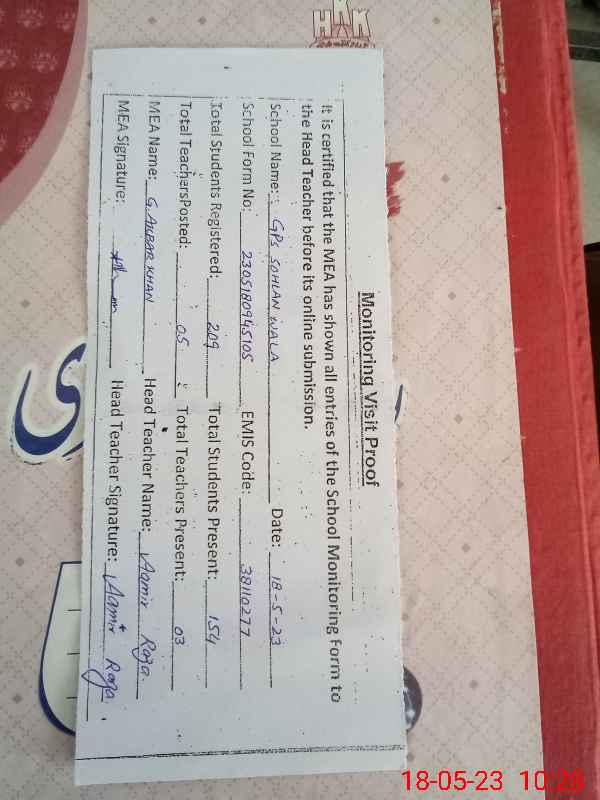 Monitoring Visit Proof
It is certified that the MEA has shown all entries of the School Monitoring Form to
the Head Teacher before its online submission.
School Name: GPS SOHLAN WALA Date: 18-5-23
School Form No: 2305180945105 EMIS Code: 38110277
Total Students Registered: 209 Total Students Present: 154
Total TeachersPosted: 05 Total Teachers Present: 03
MEA Name: G. AKBAR KHAN Head Teacher Name: Aamir Raza
MEA Signature: Head Teacher Signature: Aamir Raza
18-05-23 10:28